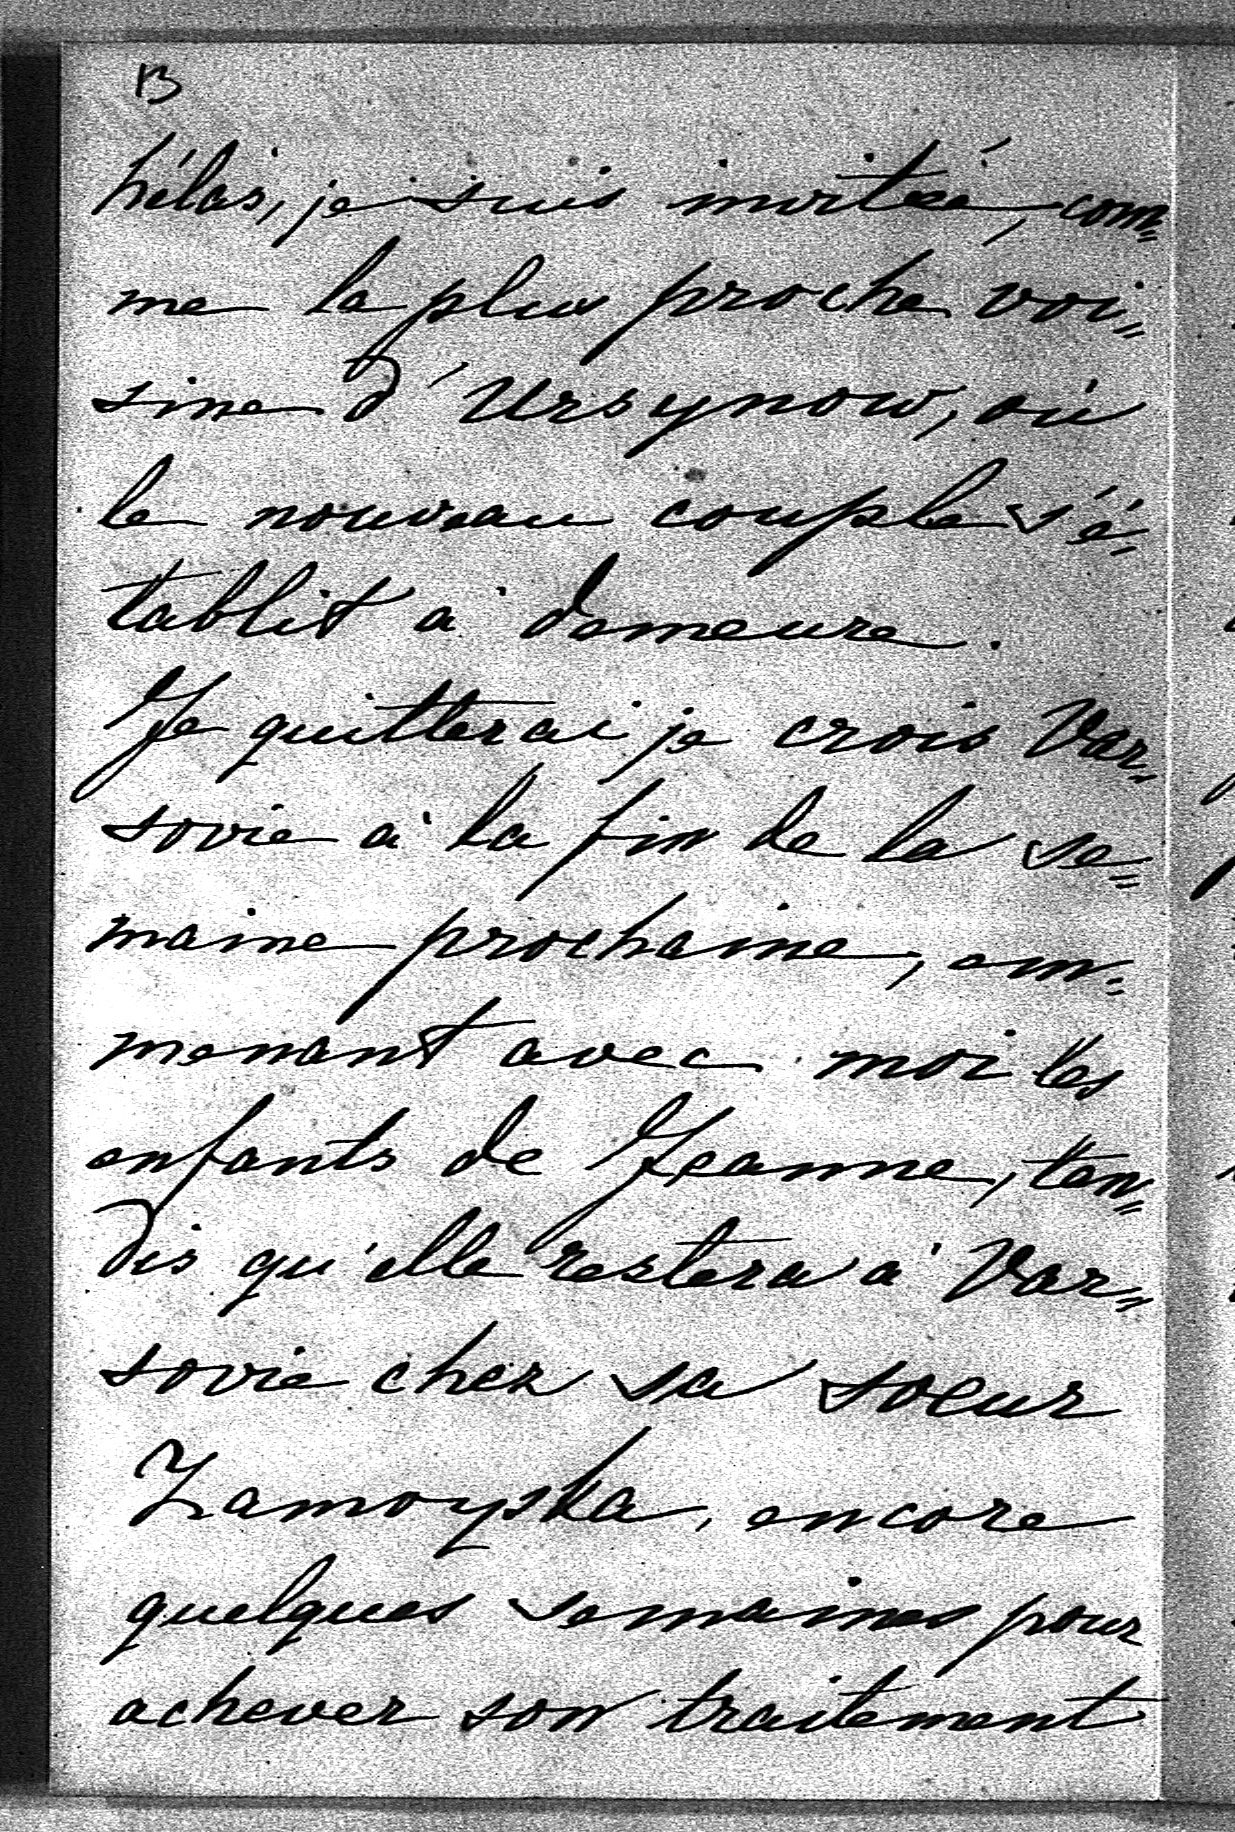 13
hélas, je suis invitée, com=
me la plus proche voi=
sine d'Ursynow, où
le nouveau couple s'é=
tablit à demeure.
Je quitterai je crois Var=
sovie à la fin de la se=
maine prochaine, em=
menant avec moi les
enfants de Jeanne, tan=
dis qu'elle restera à Var=
sovie chez sa soeur
Zamoyska, encore
quelques semaines pour
achever son traitement